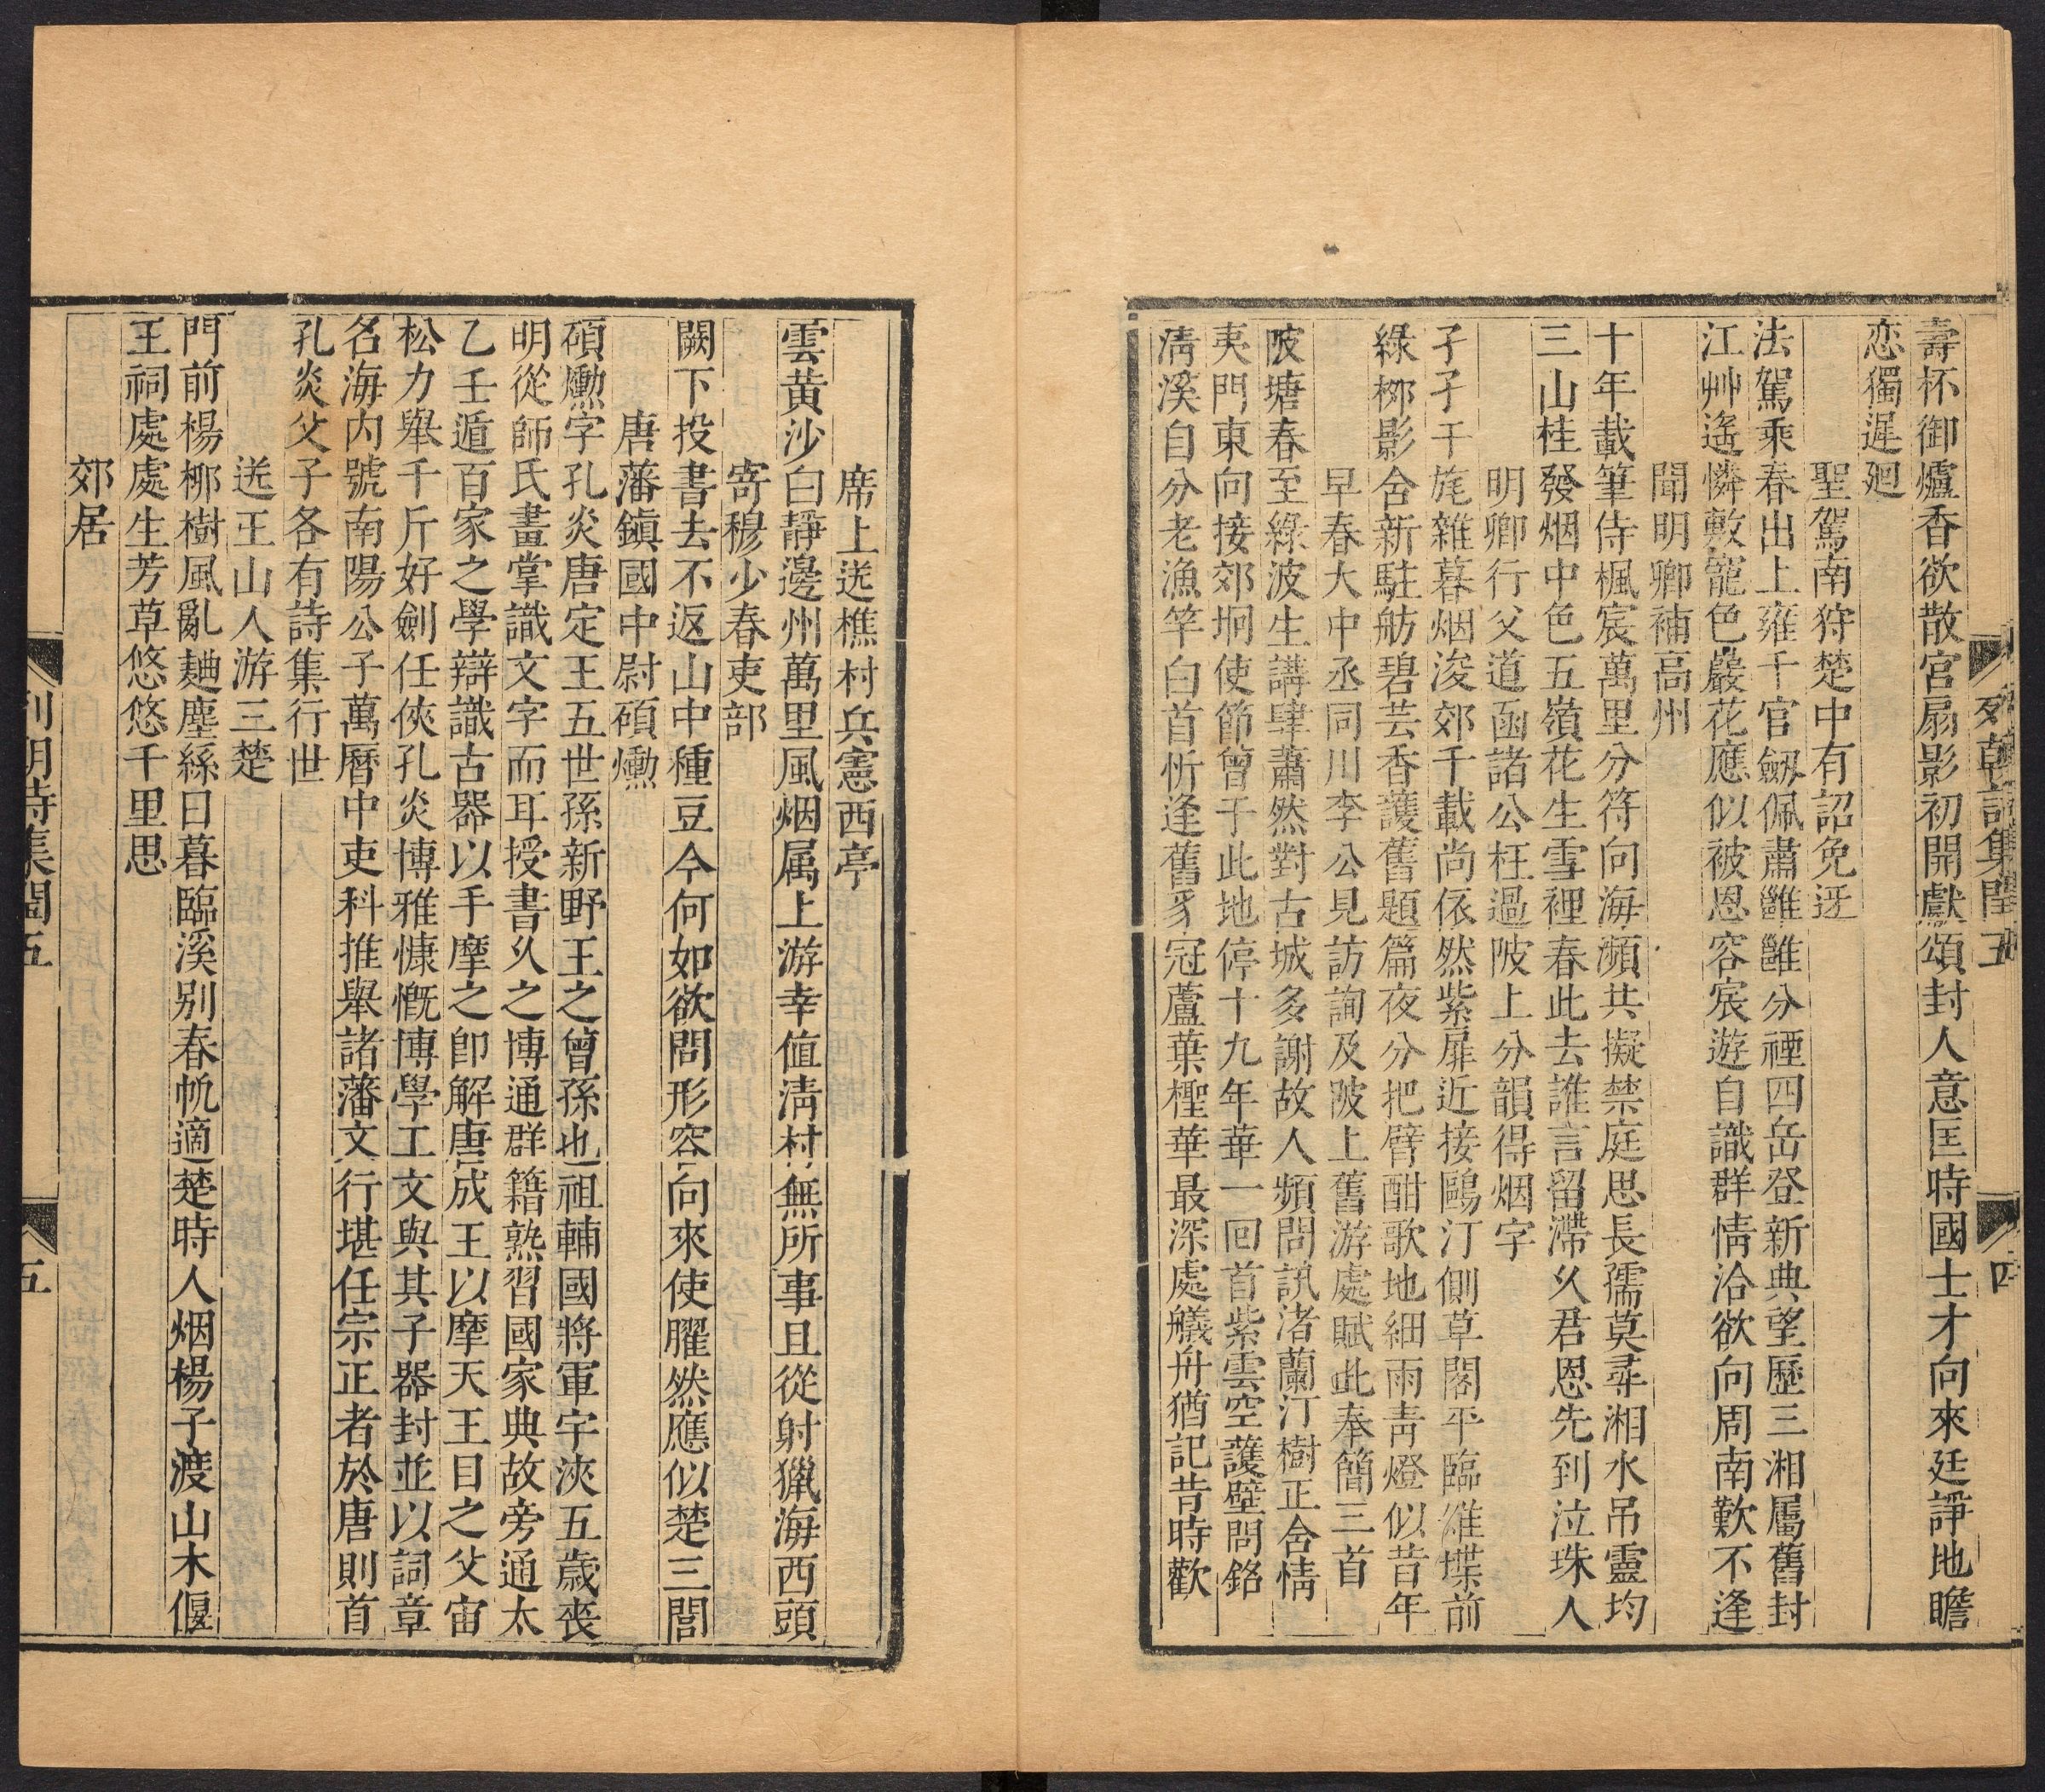 列朝詩集閏五
四
壽杯御爐香欲散宮扇影初開獻頌封人意匡時國士才向來廷諍地瞻
恋獨遲廻
聖駕南狩楚中有詔免迓
法駕乘春出上雍千官劔佩肅雝雝分禋四岳登新典望歷三湘屬舊封
江艸遙憐敷寵色巖花應似被恩容宸遊自識群情洽欲向周南歎不逢
聞明卿補高州
十年載筆侍楓宸萬里分符向海瀕共擬禁庭思長孺莫尋湘水吊靈均
三山桂發烟中色五嶺花生雪裡春此去誰言留滯久君恩先到泣珠人
明卿行父道函諸公枉過陂上分韻得烟字
孑孑干旄雜暮烟浚郊千載尚依然紫扉近接鷗汀側草閣平臨雉堞前
綠栁影舍新駐舫碧芸香護舊題篇夜分把臂酣歌地細雨青燈似昔年
早春大中丞同川李公見訪詢及陂上舊游處賦此奉簡三首
陂塘春至綠波生講肆蕭然對古城多謝故人頻問訊渚蘭汀樹正含情
夷門東向接郊坰使節曾于此地停十九年華一回首紫雲空護壁間銘
淸溪自分老漁竿白首忻逢舊豸冠蘆葉檉華最深處艤舟猶記昔時歡
席上送樵村兵憲西亭
雲黄沙白靜邊州萬里風烟属上游幸值淸村無所事且從射獵海西頭
寄穆少春吏部
闕下投書去不返山中種豆今何如欲問形容向來使臞然應似楚三閭
唐藩鎭國中尉碩爋
碩爋字孔炎唐定王五世孫新野王之曾孫也祖輔國將軍宇浹五歲喪
明從師氏畫掌識文字而耳授書久之博通群籍熟習國家典故旁通太
乙壬遁百家之學辯識古器以手摩之卽解唐成王以摩天王目之父宙
松力舉千斤好劍任俠孔炎博雅慷慨博學工文與其子器封並以詞章
名海内號南陽公子萬曆中吏科推舉諸藩文行堪任宗正者於唐則首
孔炎父子各有詩集行世
送王山人游三楚
門前楊栁樹風亂麯塵絲日暮臨溪别春帆適楚時人烟楊子渡山木偃
王祠處處生芳草悠悠千里思
郊居
列朝詩集閏五
五